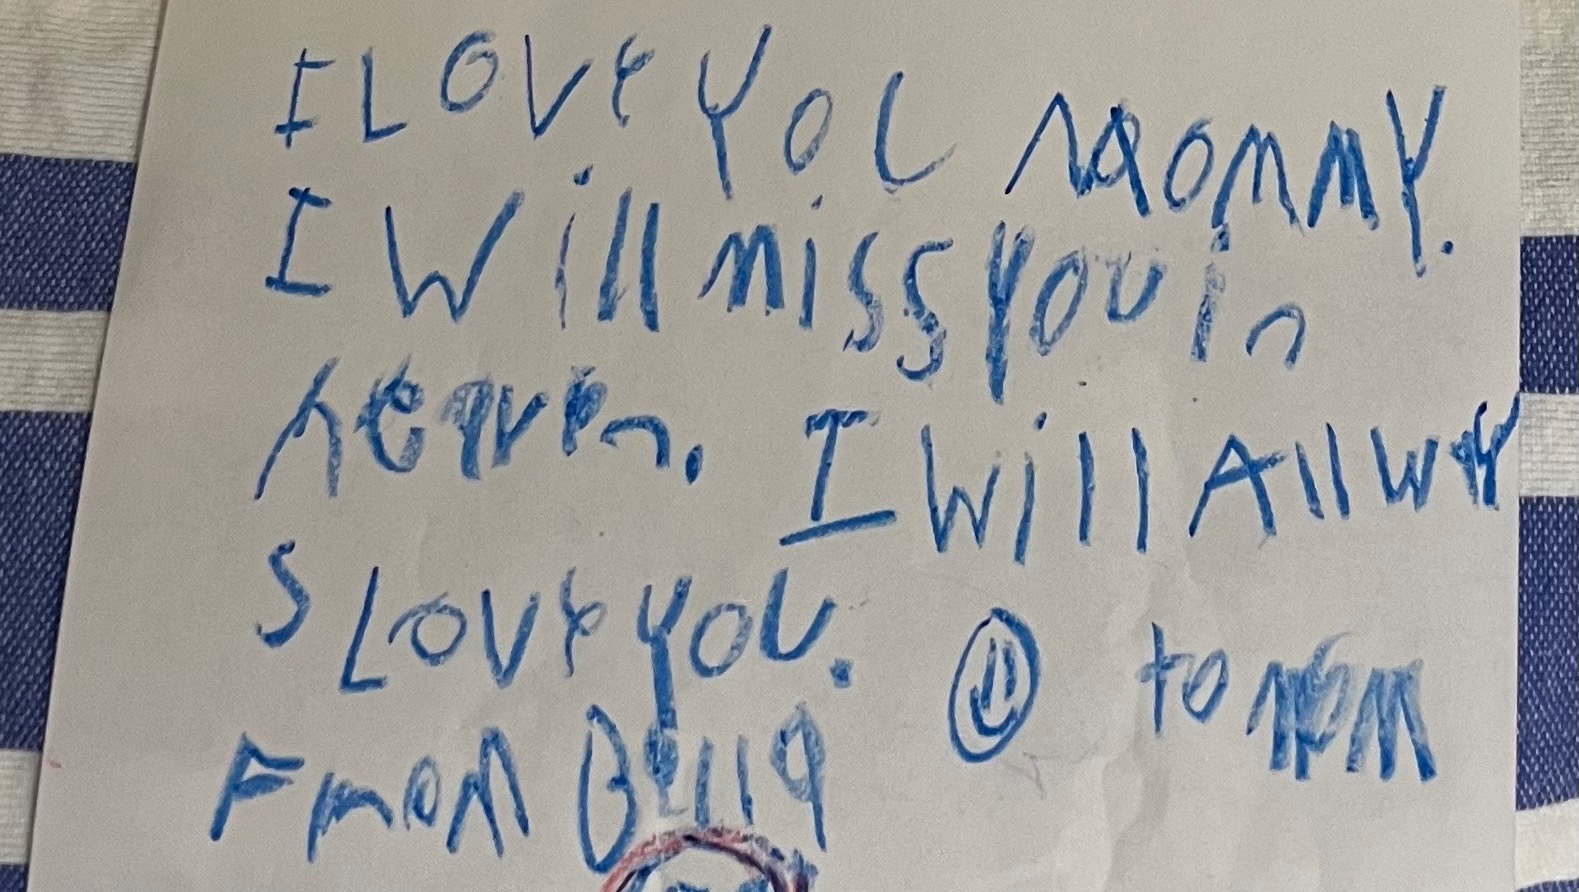 I LOVE YOU MOMMY.
I Will miss you in
heaven. I Will Allway
S LOVE YOU. to mom
From Bella